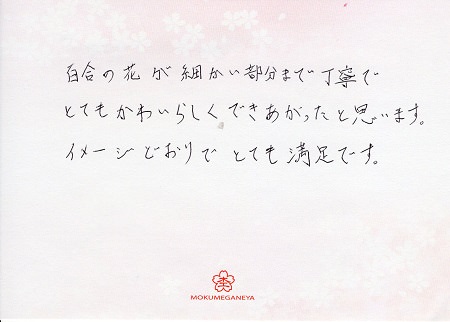 百合の花が細かい部分まで丁寧で
とてもかわいらしくできあがったと思います。
イメージどおりでとても満足です。
MOKUMEGANEYA